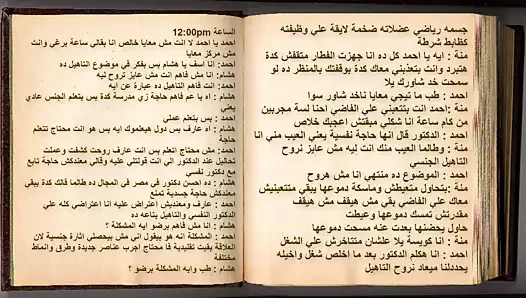 جسمه رياضي عضلاته ضخمة لايقة علي وظيفته
كظابط شرطة
منة : ايه يا احمد كل ده انا جهزت الفطار متقفش كدة
هتبرد وانت بتعذبني معاك كدة بوقفتك بالمنظر ده لو
سمحت خد شاورك يلا
احمد : طب ما تيجي معايا ناخد شاور سوا
منة :احمد انت بتتعبني علي الفاضي احنا لسة مجربين
من كام ساعة انا شكلي مبقتش اعجبك خلاص
احمد : الدكتور قال انها حاجة نفسية يعني العيب مني انا
منة : وطالما العيب منك انت ليه مش عايز نروح
التاهيل الجنسي
احمد : الموضوع ده منتهي انا مش هروح
منة :بتحاول متعيطش وماسكة دموعها يبقي متتعبنيش
معاك علي الفاضي بقي مش هيقف مش هيقف
مقدرتش تمسك دموعها وعيطت
حاول يحضنها بعدت عنه مسحت دموعها
منة : انا كويسة يلا علشان متتاخرش علي الشغل
احمد : انا هكلم الدكتور بعد ما اخلص شغل واخيله
يحددلنا ميعاد نروح التاهيل
الساعة 12:00pm
احمد يا احمد لا انت مش معايا خالص انا بقالي ساعة برغي وانت
مش مركز معايا
احمد : انا اسف يا هشام بس بفكر في موضوع التاهيل ده
هشام: انا مش فاهم انت مش عايز تروح ليه
احمد : انت فاهم التاهيل ده عبارة عن ايه
هشام : اه يا عم فاهم حاجة زي مدرسة كدة بس بتعلم الجنس عادي
يعني
احمد : بس بتعلم عملي
هشام : اه عارف بس دول هيعلموك ايه بس هو انت محتاج تتعلم
حاجة
احمد : مش محتاج اتعلم بس انت عارف روحت كشفت وعملت
تحاليل عند الدكتور الي انت قولتلي عليه وقالي معندكش حاجة تابع
مع دكتور نفسي
هشام : ده احسن دكتور في مصر في المجال ده طالما قالك كدة يبقي
معندكش حاجة جسدية تمنع
احمد : عارف ومعنديش اعتراض عليه انا اعتراضي كله علي
الدكتور النفسي والتاهيل بتاعه ده
هشام : انا مش فاهم برضو ايه المشكلة ؟
احمد : المشكلة انه هو بيقول اني مش بيحصلي اثارة جنسية لان
العلاقة بقيت تقليدية فا محتاج اجرب عناصر جديدة وطرق وانماط
مختلفة
هشام : طب وايه المشكلة برضو ؟